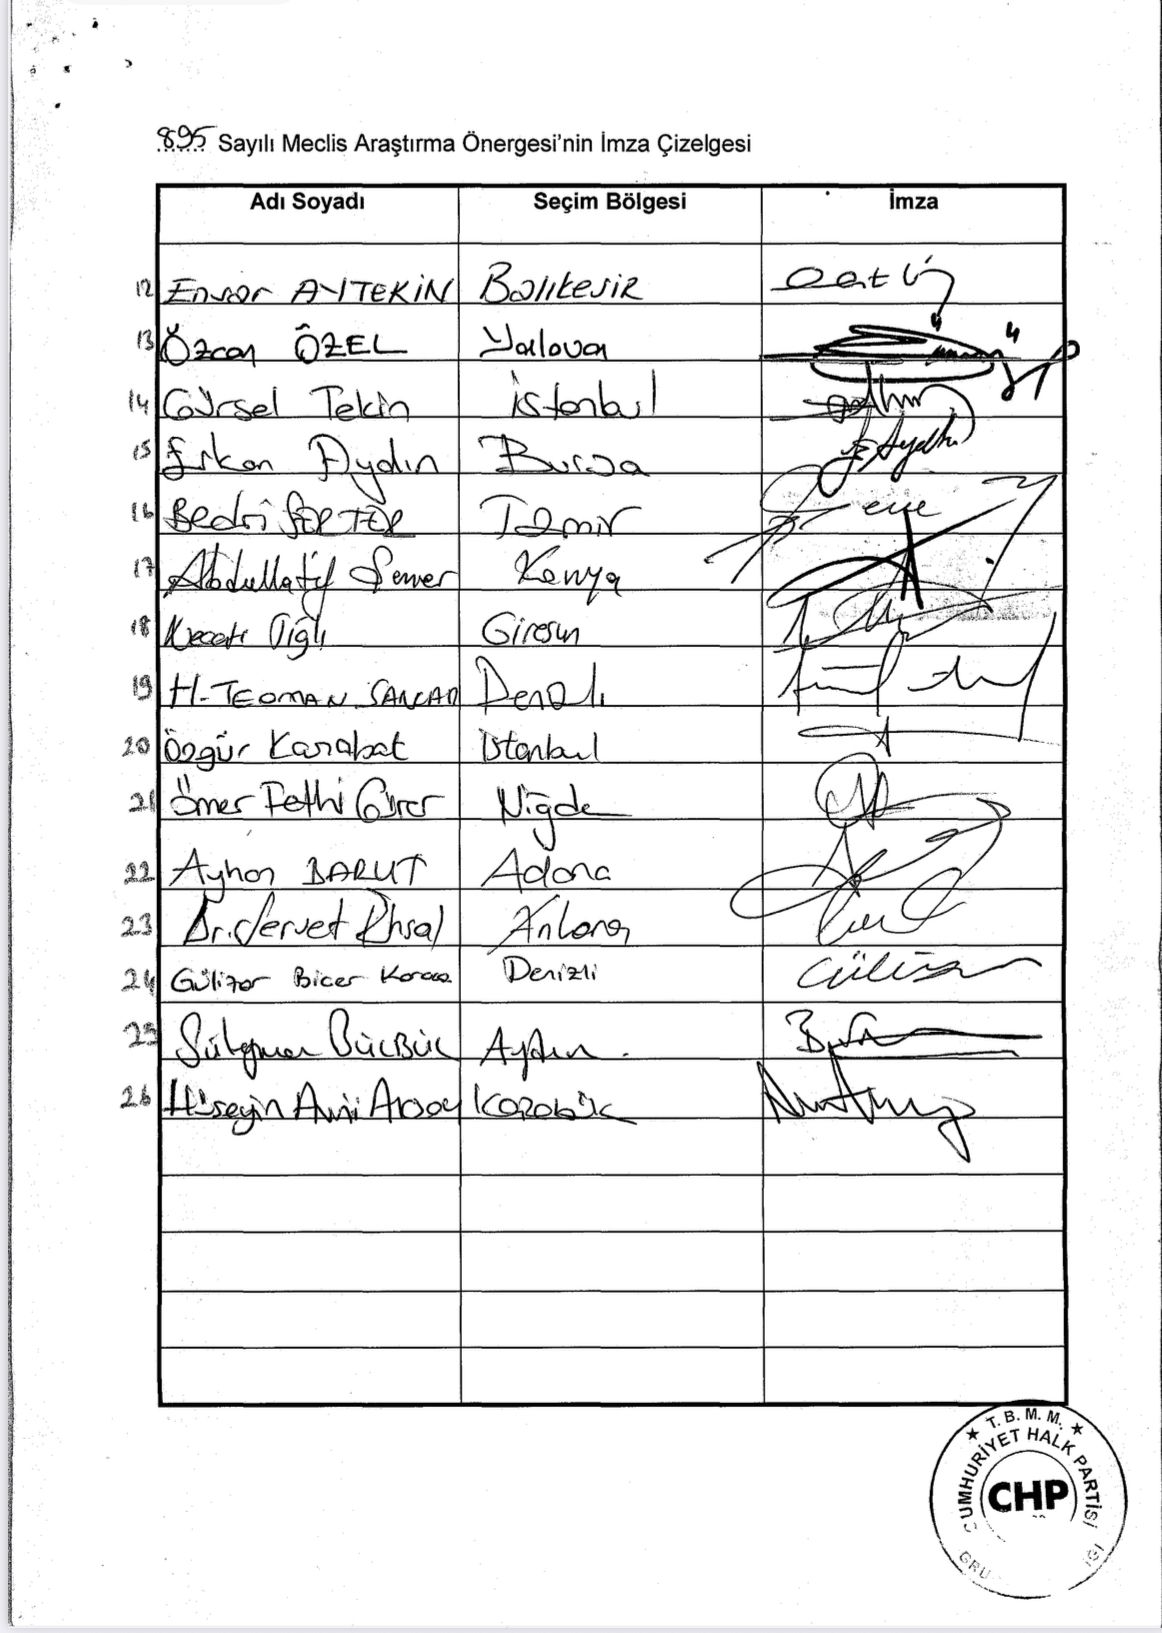 895 Sayılı Meclis Araştırma Önergesi'nin İmza Çizelgesi
Adı Soyadı Seçim Bölgesi İmza
12 Ensar AYTEKİN Balıkesir
13 Özcan ÖZEL Yalova
14 Gürsel Tekin İstanbul
15 Erkan Aydın Bursa
16 Bedri SERTER İzmir
17 Abdullatif Şener Konya
18 Necati Tığlı Giresun
19 H. TEOMAN SANCAR Denizli
20 Özgür Karabat İstanbul
21 Ömer Fethi Gürer Niğde
22 Ayhan BARUT Adana
23 Dr. Servet Ünsal Ankara
24 Gülizar Biçer Karaca Denizli Gülizar
25 Süleyman BÜLBÜL Aydın
26 Hüseyin Avni Aksoy KARABÜK
★ T. B. M. M. ★
CUMHURİYET HALK PARTİSİ
CHP